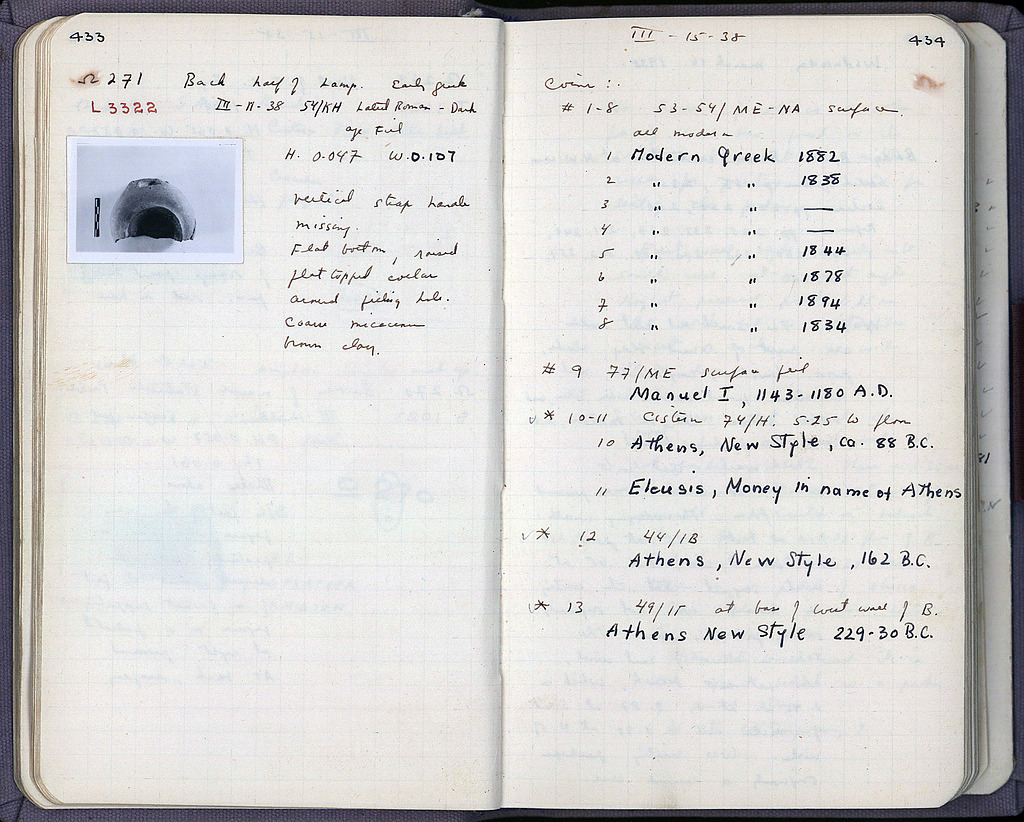 433
Ω 271 Back half of lamp. Early Greek
L 3322 III-11-38 54/ΚΗ Late Roman - Dark
age Fill
H. 0.047 W. 0.107
vertical strap handle
missing.
Flat bottom, raised
flat topped collar
around filling hole.
Coarse micaceous
brown clay.
III - 15-38
434
Coins:
# 1-8 53-54/ΜΕ-ΝΑ surface
all modern
1 Modern Greek 1882
2 " " 1838
3 " " —
4 " " —
5 " " 1844
6 " " 1878
7 " " 1894
8 " " 1834
# 9 77/ΜΕ surface fill
Manuel I, 1143-1180 A.D.
√ * 10-11 Cistern 74/Η. 5.25 to floor
10 Athens, New Style, ca. 88 B.C.
11 Eleusis, Money in name of Athens
√ * 12 44/ΙΒ
Athens, New Style, 162 B.C.
√ * 13 49/ΙΓ at base of west wall of B.
Athens New Style 229-30 B.C.